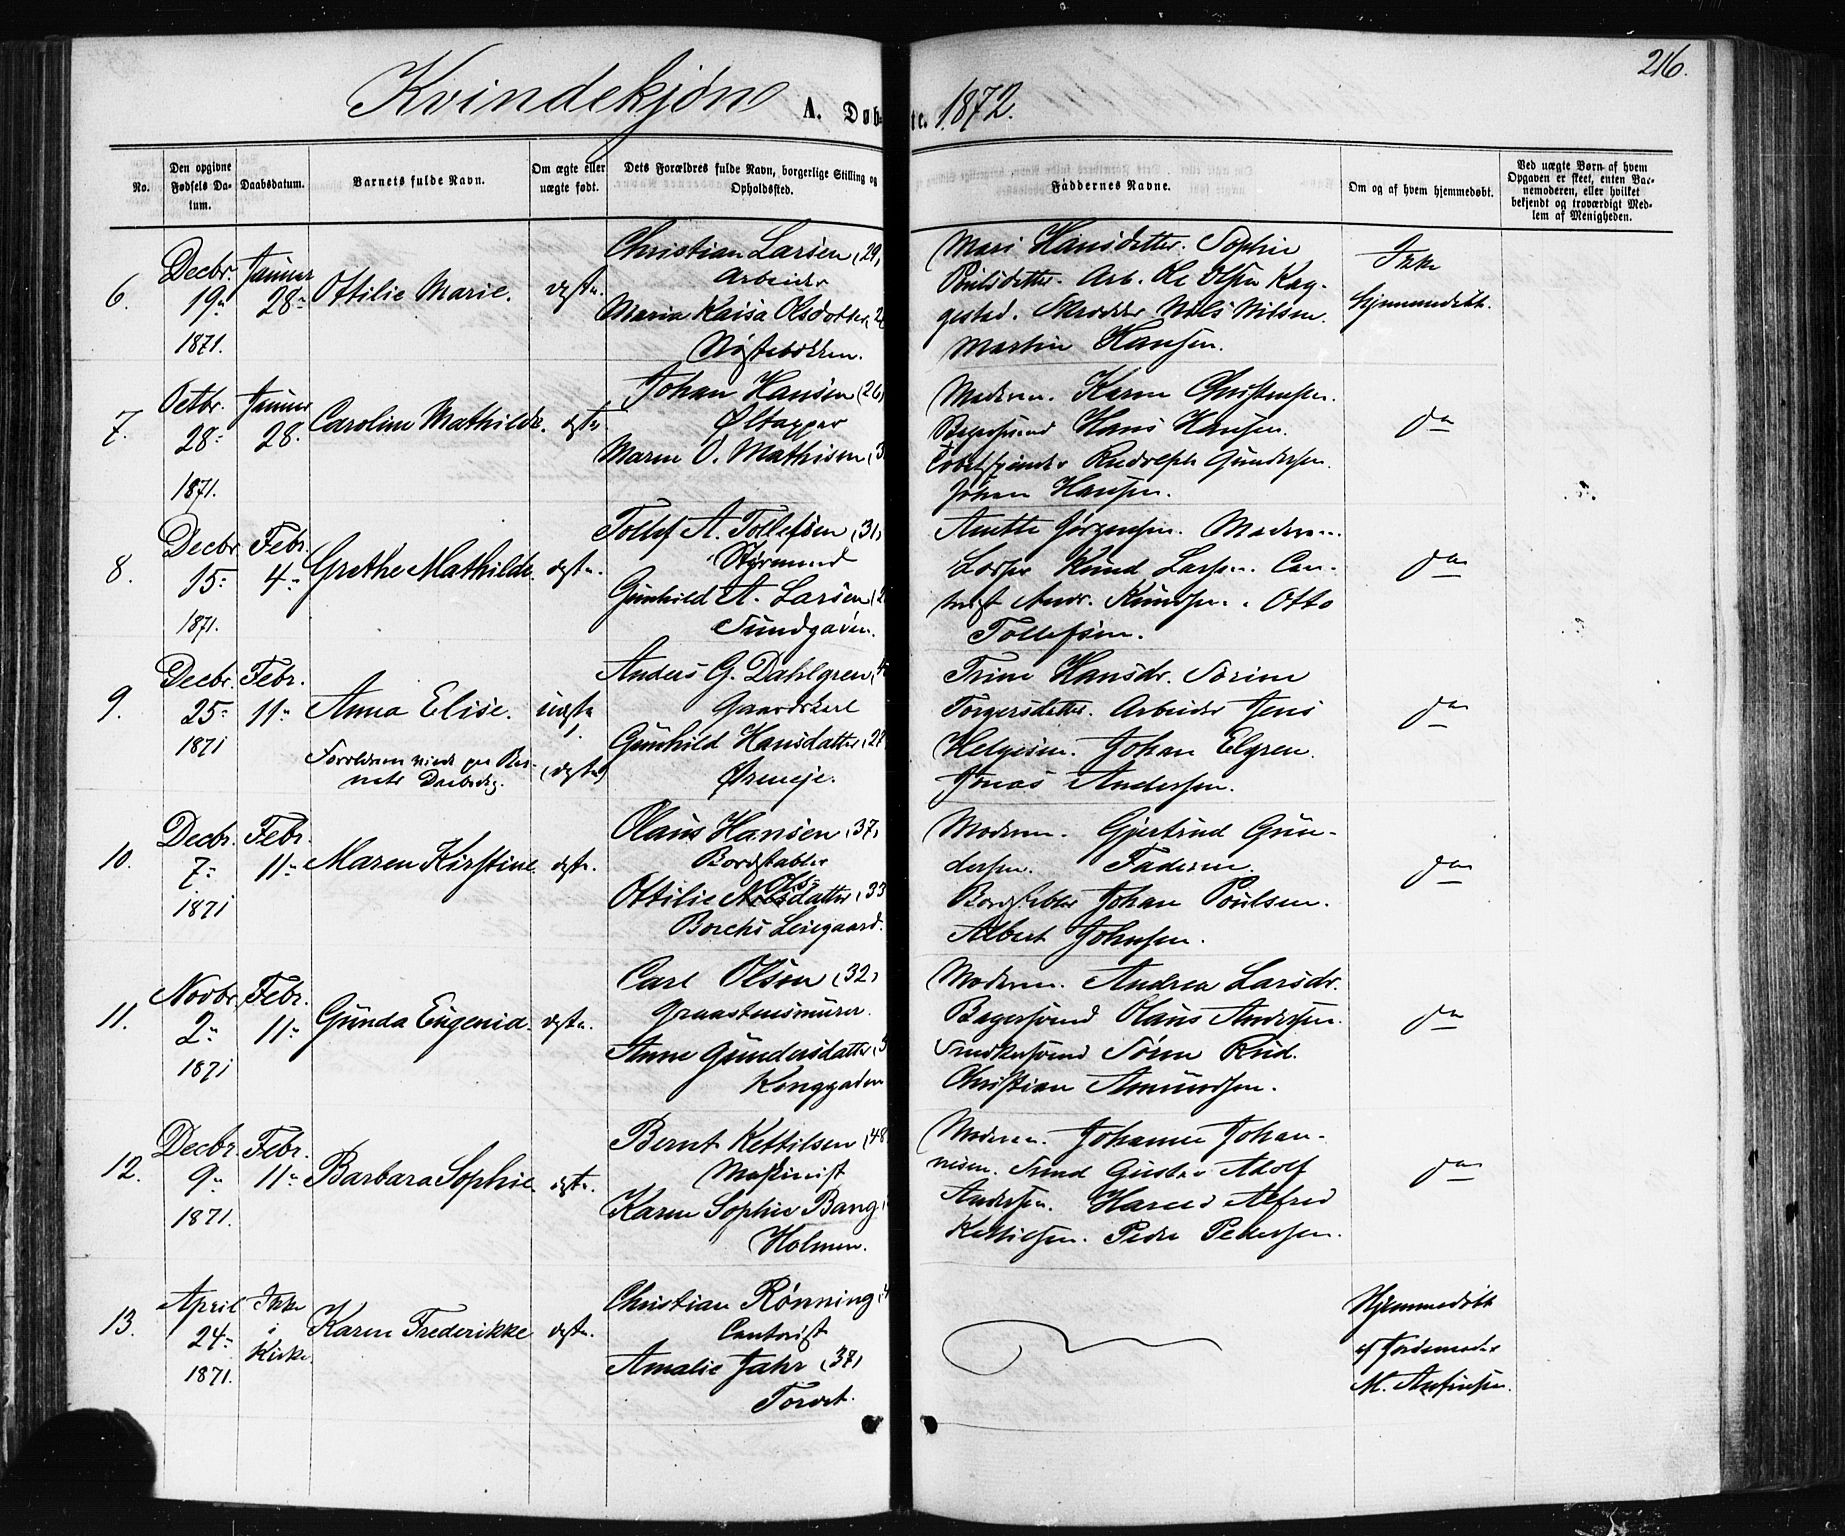 216.
Kvindekjøn A. Døbte. 1872.
No.
Den opgivne Fødsels Datum.
Daabsdatum.
Barnets fulde Navn.
Om ægte eller uægte født.
Dets Forældres fulde Navn, borgerlige Stilling og Opholdssted.
Faddernes Navne.
Om og af hvem hjemmedøbt.
Ved uægte Børn af hvem Opgaven er skeet, enten Barnemoderen, eller hvilket bekjendt og troværdigt Medlem af Menigheden.
6.
Decbr. 19de 1871.
Januar 28de
Ottilie Marie.
ægte.
Christian Larsen (29)
Arbeider
Maria Kaisa Olsdotter
Nøstebakken.
Mari Hansdatter. Sophie
Poulsdatter. Arb. Ole Olsen Kag-
gestad. Skrædder Nils Nilsen.
Martin Hansen.
Ikke
hjemmedøbt.
7.
Octbr. 28de 1871.
Januar 28.
Caroline Mathilde.
ægte
Johan Hansen (26)
Øltapper
Maren O. Mathisen
Moderen. Karen Christensen.
Bagersvend Hans Hansen.
Rudolph Gundersen.
Johan Hansen.
do
8.
Decbr 15de 1871.
Febr. 4de
Grethe Mathilde.
ægte.
Tollef A. Tollefsen (31)
Styrmand
Gunhild A. Larsen
Tundgaden.
Anette Jørgensen. Moderen.
Lodser Knud Larsen. Con-
torist Andr. Knudsen. Otto
Tollefsen.
do
9.
Decbr. 25de 1871
Febr. 11te
Anna Elise.
Forældrene viede paa Bar-
nets Daabsdag.
uægte
(ægte)
Anders G. Dahlgren
Gaardskarl
Gunhild Hansdatter
Øreneje.
Trine Hansdr. Sorine
Torgersdatter. Arbeider Jens
Helgesen. Johan Elgren.
Jonas Andersen.
do
10.
Decbr. 7de 1871
Febr. 11te
Maren Kirstine.
ægte.
Olaus Hansen (37)
Bordstabler
Ottilie Olsdatter (33
Borchs Leiegaard.
Moderen. Gjertrud Gun-
dersen. Faderen.
Bordstabler Johan Poulsen.
Albert Johnsen.
do
11.
Novbr. 2de 1871
Febr. 11te
Gunda Eugenia.
ægte.
Carl Olsen (32)
Graastensmurer.
Anne Gundersdatter
Konggaden
Moderen. Andrea Larsdr.
Bagersvend Olaus Andersen.
Snedkersvend Søren Rud.
Christian Amundsen.
do
12.
Decbr. 9de 1871.
Febr. 11te
Barbara Sophie.
ægte.
Bernt Kettilsen (48
Maskinist
Karen Sophie Bang
Holmen.
Moderen. Johanne Johan-
nesen. Smed Gustav Adolf
Andersen. Harald Alfred
Kettilsen. Peder Pedersen.
do
13.
April 24de 1871.
Ikke i Kirke.
Karen Frederikke
ægte.
Christian Rønning
Contorist
Amalie Jahr (37)
Torvet.
Hjemmedøbt
af Jordemoder
M. Anfinsen.